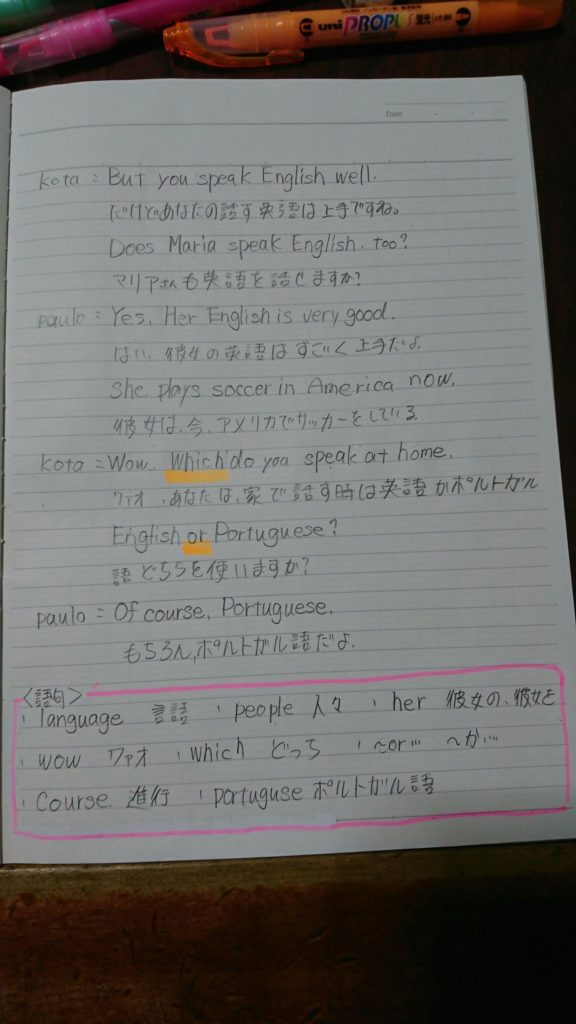 uni PROPUS 蛍光
Date
kota : But you speak English well.
だけどあなたの話す英語は上手ですね。
Does Maria speak English, too?
マリアさんも英語を話せますか?
paulo : Yes. Her English is very good.
はい、彼女の英語はすごく上手だよ.
She plays soccer in America now.
彼女は、今、アメリカでサッカーをしている.
kota = Wow. Which do you speak at home.
ワァオ,あなたは、家で話す時は英語かポルトガル
English or Portuguese?
語どちらを使いますか?
paulo = Of course, Portuguese.
もちろん,ポルトガル語だよ.
<語句>
language 言語 people 人々 her 彼女の、彼女を
wow ワァオ which どっち ~or… ~か…
course 進行 portuguse ポルトガル語